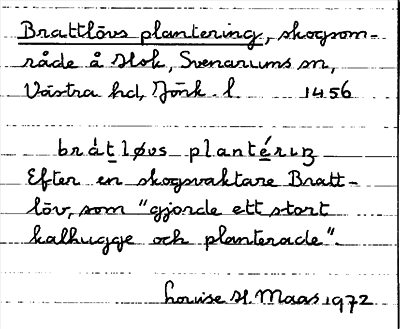 Brattlövs plantering, skogsom-
råde å Hok, Svenarums sn,
Västra hd, Jönk. l. 1456
brátløvs plantérıŋ
Efter en skogsvaktare Bratt-
löv, som "gjorde ett stort
kalhugge och planterade".
Louise H. Maas 1972